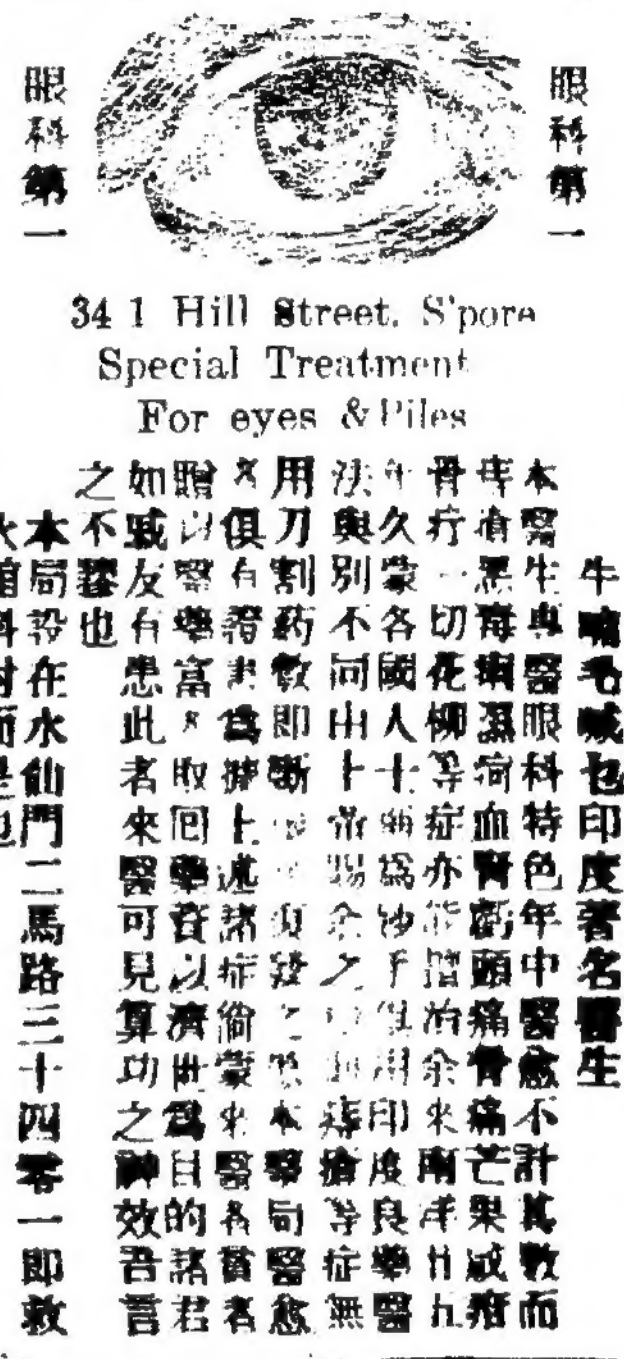 眼科第一
眼科第一
34 1 Hill Street. S'pore
Special Treatment
For eyes & Piles
牛毛也印度著名醫生
本醫生專醫眼科特色年中醫愈不計其數而
痔瘡黑毒濕疴血腎虧頭痛骨痛芒果或疳
骨疔一切花柳等症亦能醫治余來南洋廿五
年久蒙各國人士稱為妙手俱用印度良藥醫
法與別不同由上帝賜余之痔瘡等症無
用刀割葯敷即斷復發之患本醫局醫愈
者俱有證書為據上述諸症倘蒙來醫若貧者
贈以醫藥富者取回藥費以濟世為目的諸君
如戚友有患此者來醫可見算功之神效吾言
之不謬也
本局設在水仙門二馬路三十四零一即救
火館斜對面是也